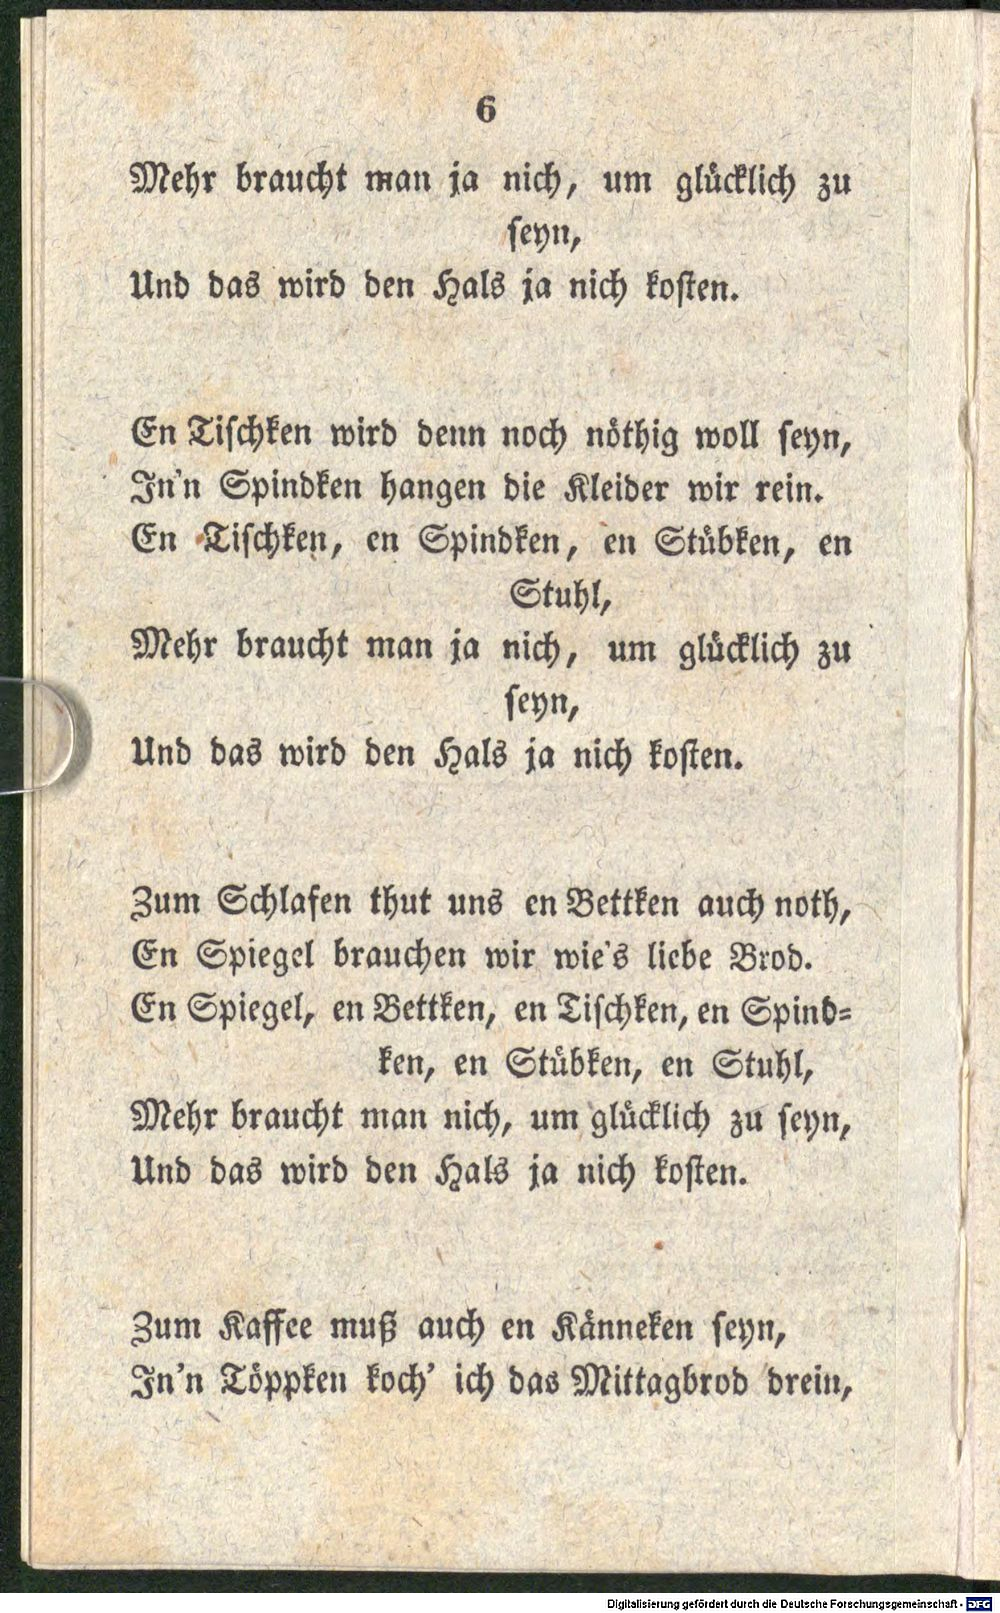 6
Mehr braucht man ja nich, um glücklich zu
seyn,
Und das wird den Hals ja nich kosten.
En Tischken wird denn noch nöthig woll seyn,
In'n Spindken hangen die Kleider wir rein.
En Tischken, en Spindken, en Stübken, en
Stuhl,
Mehr braucht man ja nich, um glücklich zu
seyn,
Und das wird den Hals ja nich kosten.
Zum Schlafen thut uns en Bettken auch noth,
En Spiegel brauchen wir wie's liebe Brod.
En Spiegel, en Bettken, en Tischken, en Spind-
ken, en Stübken, en Stuhl,
Mehr braucht man nich, um glücklich zu seyn,
Und das wird den Hals ja nich kosten.
Zum Kaffee muß auch en Känneken seyn,
In'n Töppken koch' ich das Mittagbrod drein,
Digitalisierung gefördert durch die Deutsche Forschungsgemeinschaft - DFG